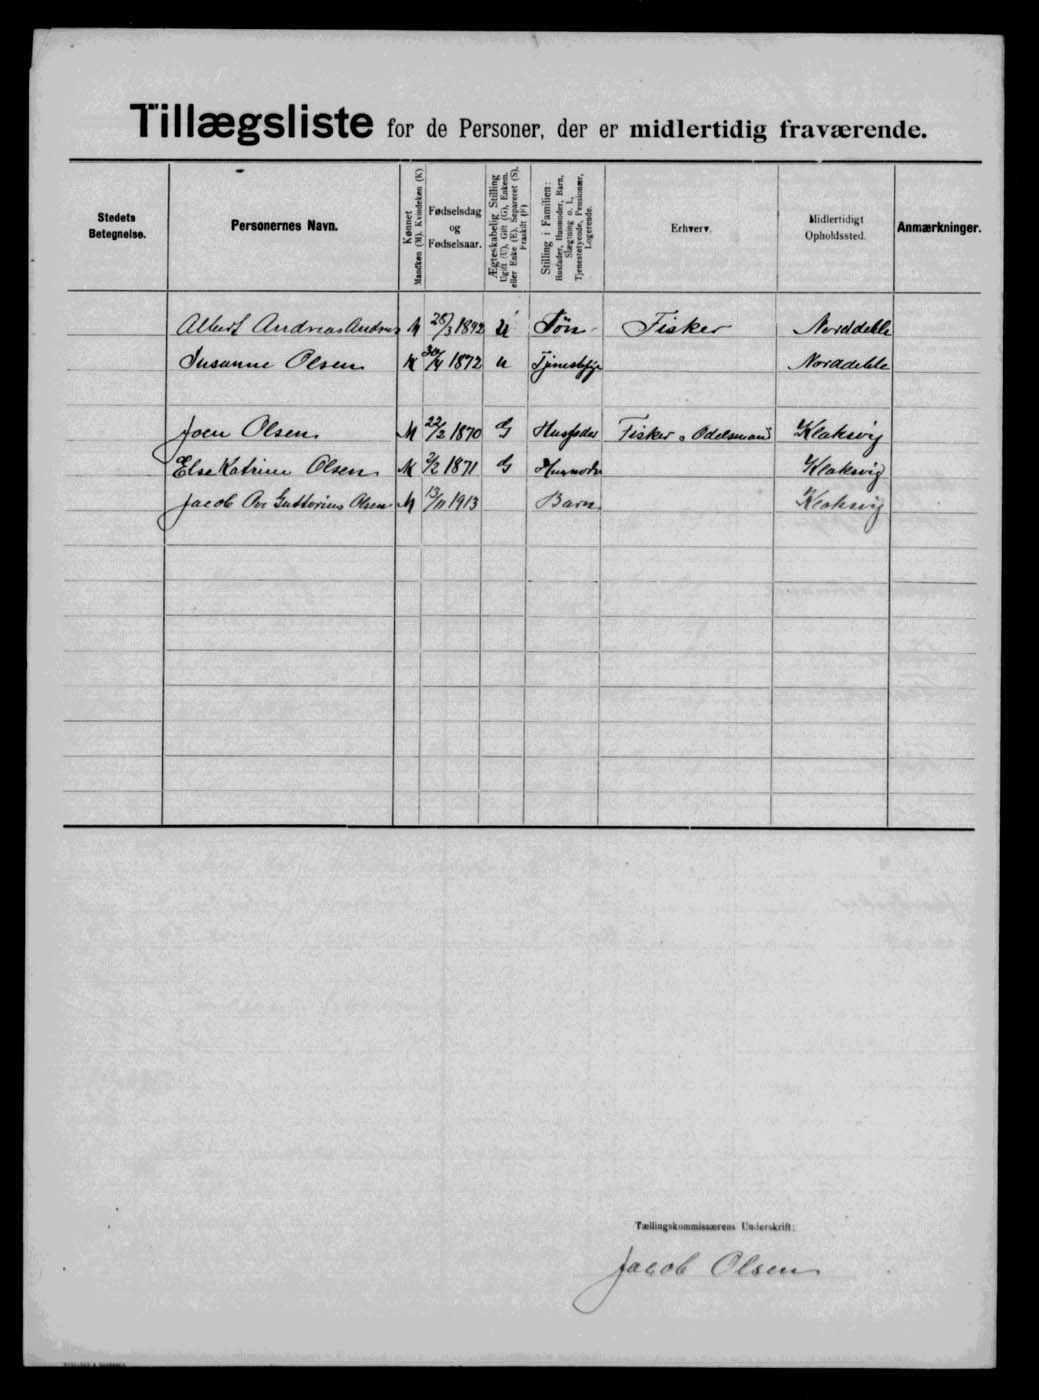 Tillægsliste for de Personer, der er midlertidig fraværende.
Stedets Betegnelse.
Personernes Navn.
Kønnet Mandkøn (M). Kvindekøn (K)
Fødselsdag og Fødselsaar.
Ægteskabelig Stilling Ugift (U), Gift (G), Enkem. eller Enke (E), Separeret (S), Fraskilt (F)
Stilling i Familien: Husfader, Husmoder, Barn, Slægtning o. l., Tjenestetyende, Pensionær, Logerende.
Erhverv.
Midlertidigt Opholdssted.
Anmærkninger.
Albert Andreas M 28/3 1892 U Søn Fisker Norddeble
Susanne Olsen K 30/4 1872 u Norddeble
Joen Olsen M 22/2 1870 G Husfader Fisker o Odelsmand Klaksvig
Else Katrine Olsen M 2/2 1871 G Husmoder Klaksvig
Jacob Ove Guttorius Olsen M 13/11 1913 Barn Klaksvig
Tællingskommissærens Underskrift:
Jacob Olsen